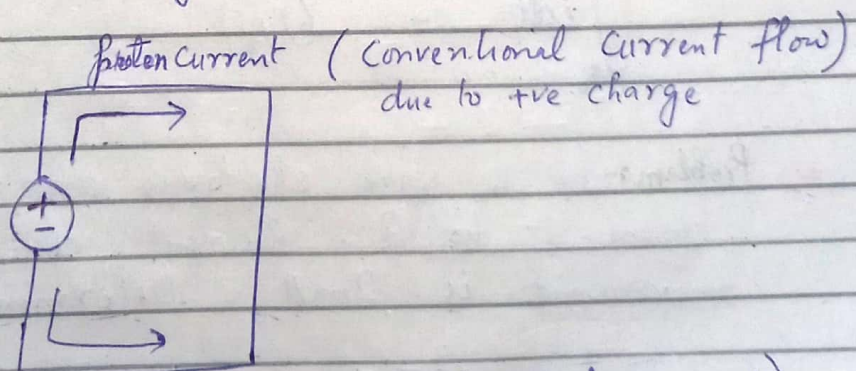 proton current (Conventional Current flow)
due to +ve charge
+
-